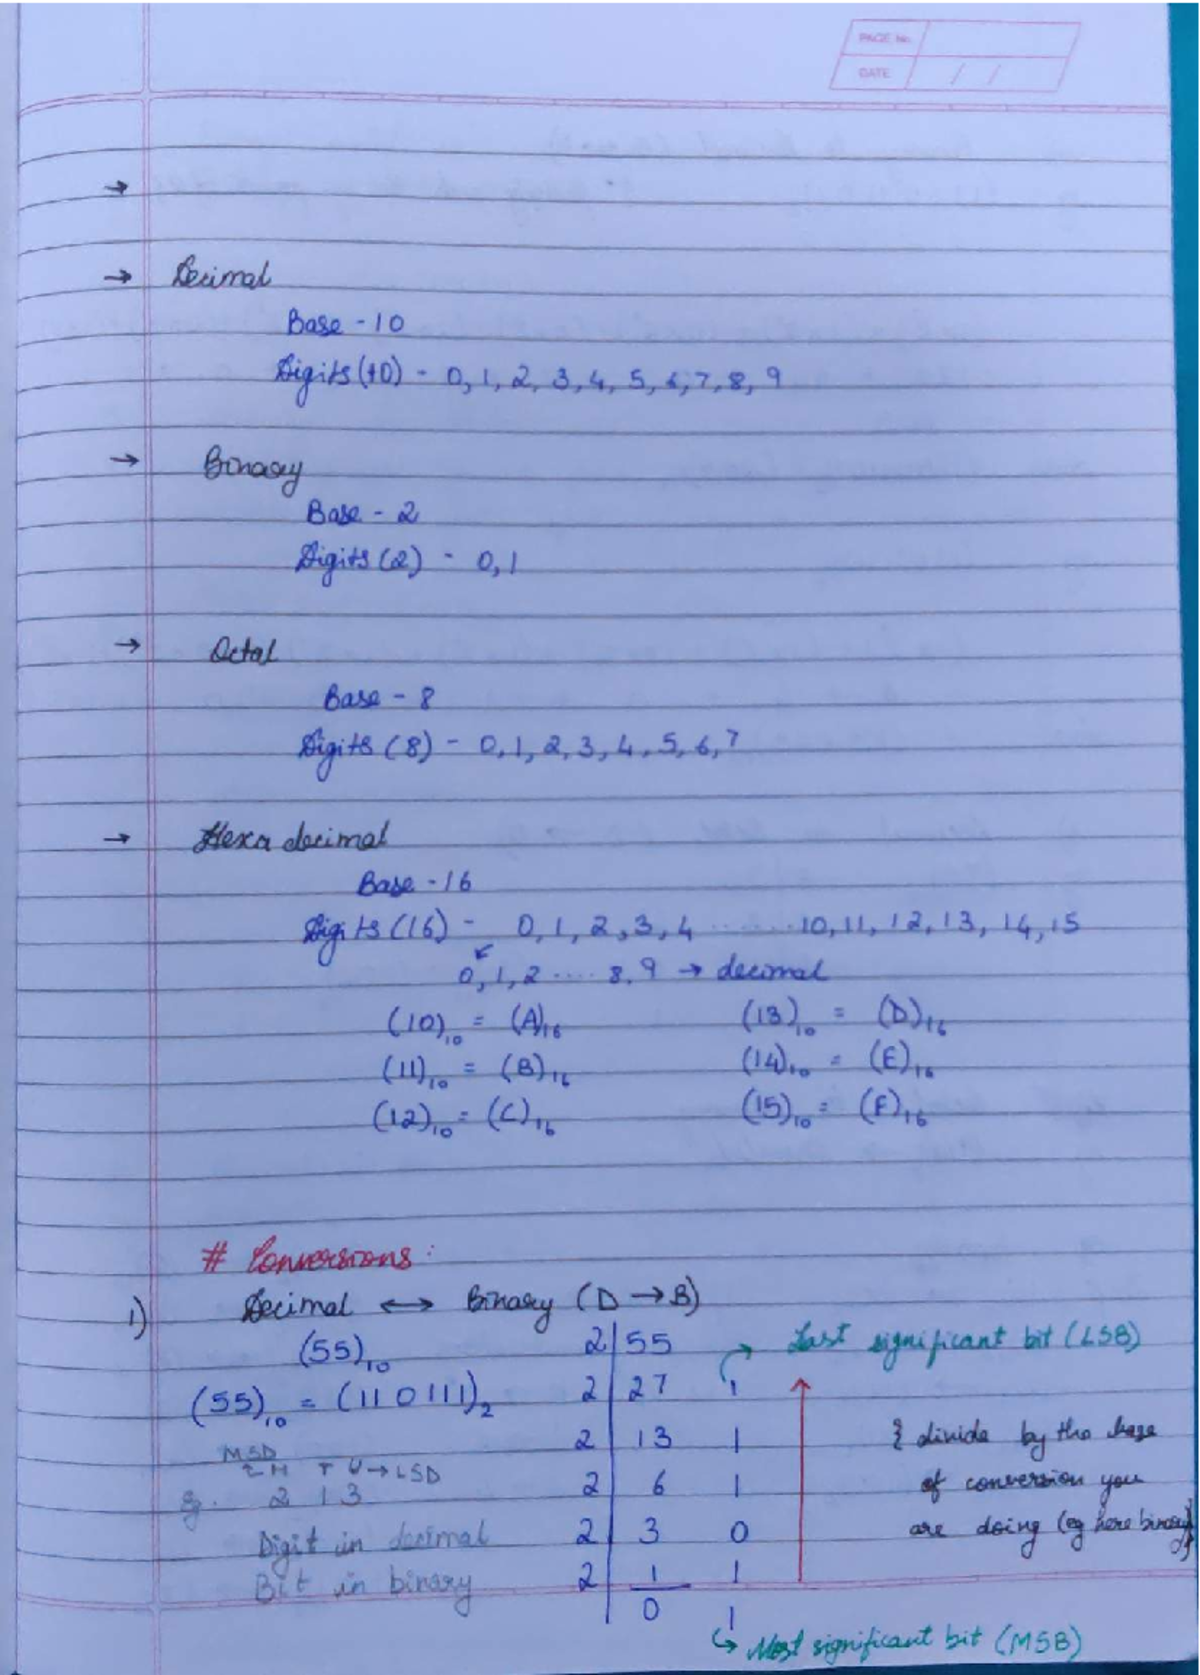 PAGE No.
DATE / /
→
→ Decimal
Base - 10
Digits (10) - 0, 1, 2, 3, 4, 5, 6, 7, 8, 9
→ Binary
Base - 2
Digits (2) - 0, 1
→ Octal
Base - 8
Digits (8) - 0, 1, 2, 3, 4, 5, 6, 7
→ Hexa decimal
Base - 16
Digits (16) - 0, 1, 2, 3, 4 ........ 10, 11, 12, 13, 14, 15
0, 1, 2 .... 8, 9 → decimal
(10)₁₀ = (A)₁₆ (13)₁₀ = (D)₁₆
(11)₁₀ = (B)₁₆ (14)₁₀ = (E)₁₆
(12)₁₀ = (C)₁₆ (15)₁₀ = (F)₁₆
# Conversions:
1) Decimal ↔ Binary (D → B)
(55)₁₀ 2 | 55 → Last significant bit (LSB)
(55)₁₀ = (110111)₂ 2 | 27 1
2 | 13 1 { divide by the base
MSD
← H T U → LSD
eg. 2 1 3 2 | 6 1 of conversion you
Digit in decimal 2 | 3 0 are doing (eg here binary)}
Bit in binary 2 | 1 1
0 1
↳ Most significant bit (MSB)